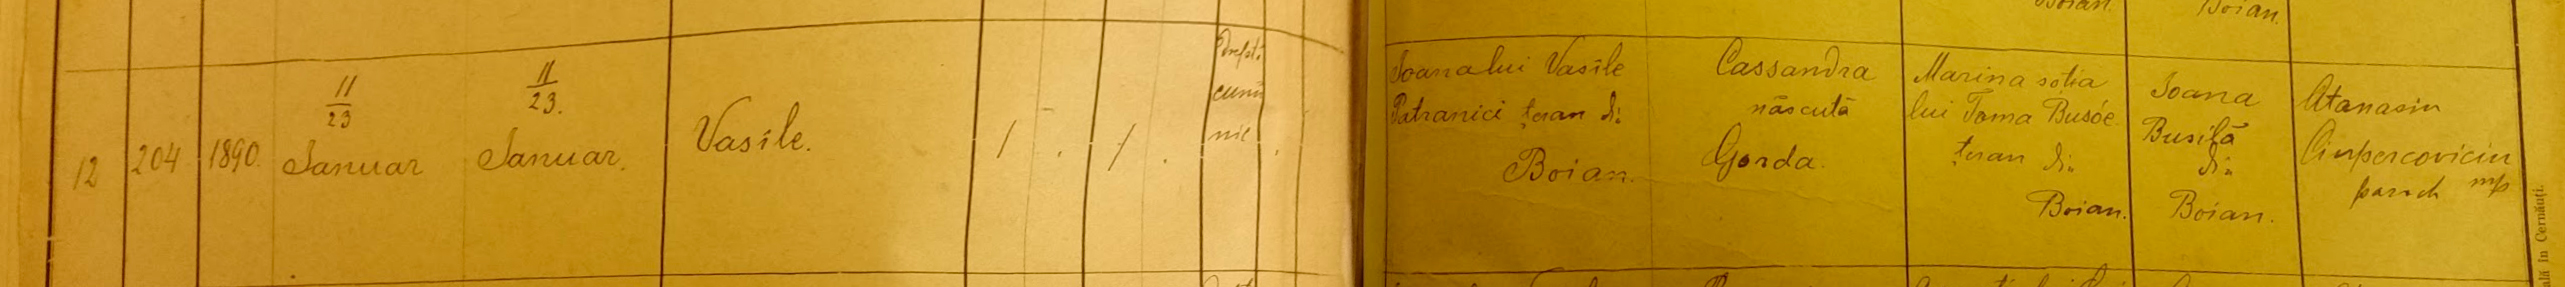 Boian.
Boian.
12
204
1890.
11
23
Januar
11
23.
Januar.
Vasile.
/
.
/
.
drept.
cunu
nie
.
Ioana lui Vasile
Patranici țeran di
Boian.
Cassandra
născută
Gorda.
Marina soția
lui Toma Busóe
țeran di
Boian.
Ioana
Busilă
di
Boian.
Atanasiu
paroch mp
ală în Cernăuți.